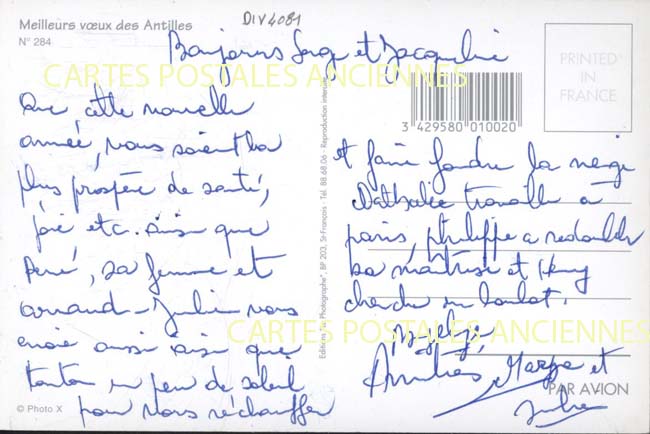 Meilleurs vœux des Antilles
N° 284
DIV4081
Bonjours Serge et Jacqueline
CARTES POSTALES ANCIENNES
Que cette nouvelle
année, vous soient la
plus prospère de santé,
joie etc. ainsi que
René, sa femme et
arnaud - Julien vous
envoie aussi ainsi que
tonton un peu de soleil
pour vous réchauffer
© Photo X
Editions "La Photographe" BP 203, St-François - Tél. 88.68.06 - Reproduction interdite
3 429580 010020
PRINTED
IN
FRANCE
et faire fondre la neige
Nathalie travaille à
paris, philippe a redoublé
sa maitrise et
cherche un boulot.
CARTES POSTALES ANCIENNES
Amitiés et
PAR AVION